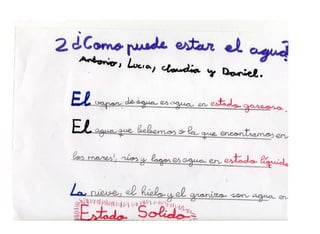 2 ¿Como puede estar el agua?
Antonio, Lucia, claudia y Daniel.
El vapor de agua es agua en estado gaseoso.
El agua que bebemos o la que encontramos en
los mares, ríos y lagos es agua en estado líquido
La nieve, el hielo y el granizo son agua en
Estado Solido